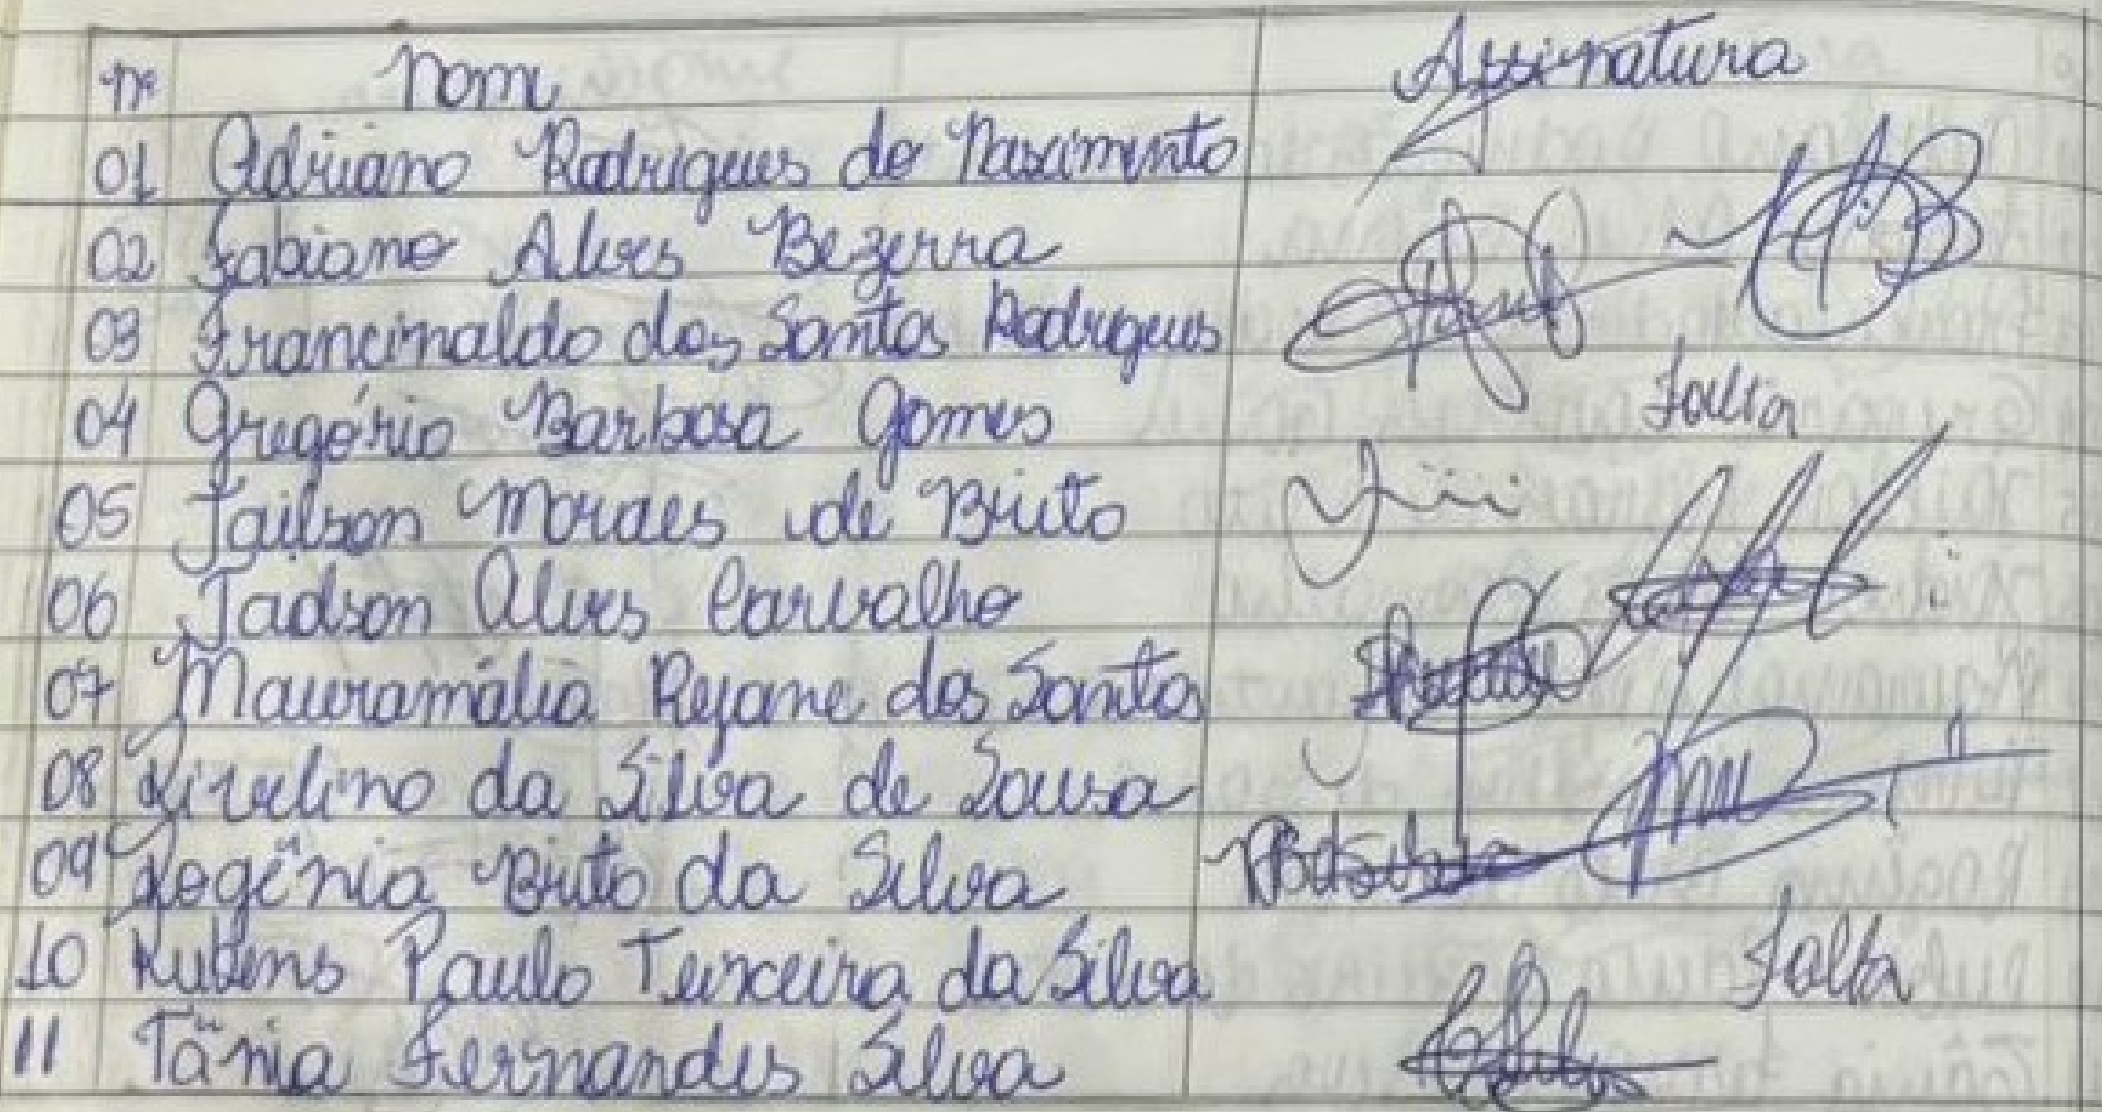 Nº Nome Assinatura
01 Adriano Rodrigues do Nascimento
02 Fabiano Alves Bezerra
03 Francinaldo dos Santos Rodrigues
04 Gregório Barbosa Gomes Falta
05 Jailson Moraes de Brito
06 Jadson Alves Carvalho
07 Mauramália Rejane dos Santos
08 Rivelino da Silva de Sousa
09 Rogênia Brito da Silva
10 Rubens Paulo Teixeira da Silva Falta
11 Tânia Fernandes Silva